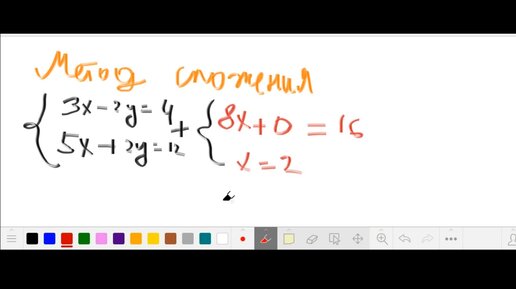 Метод сложения
3x-2y=4
5x+2y=12
+
8x+0=16
x=2